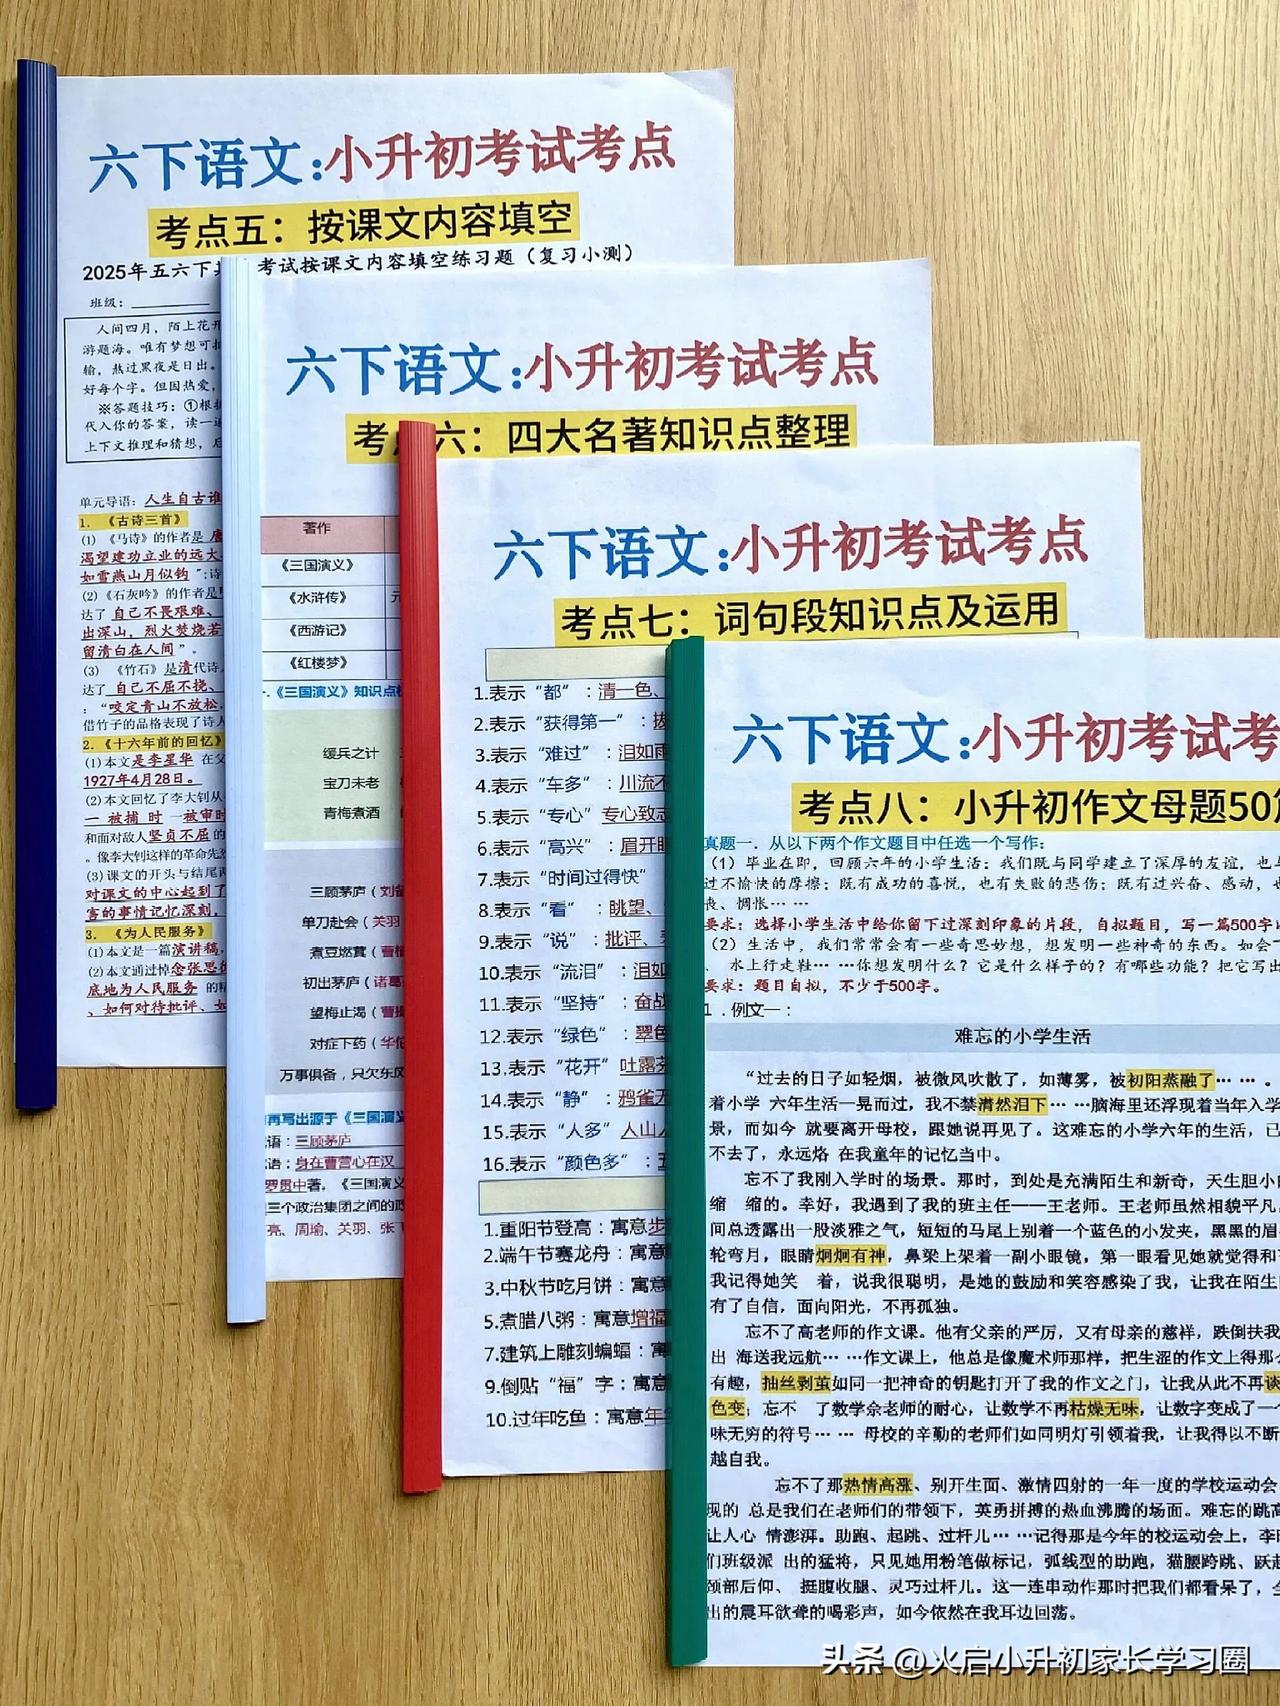 六下语文:小升初考试考点
考点五：按课文内容填空
2025年五六下 考试按课文内容填空练习题（复习小测）
班级：
人间四月，陌上花开
游题海。唯有梦想可
输，熬过黑夜是日出。
好每个字。但因热爱，
※答题技巧：①根
代入你的答案，读一
上下文推理和猜想，
单元导语：人生自古谁
1. 《古诗三首》
(1) 《马诗》的作者是
渴望建功立业的远大
如雪燕山月似钩 ";诗
(2)《石灰吟》的作者是
达了 自己不畏艰难、
出深山，烈火焚烧若
留清白在人间 "。
(3) 《竹石》是清代诗
达了 自己不屈不挠、
："咬定青山不放松
借竹子的品格表现了诗
2.《十六年前的回忆》
(1)本文是李星华 在父
1927年4月28日。
(2)本文回忆了李大钊从
一 被捕 时 一被审时
和面对敌人坚贞不屈的
。像李大钊这样的革命先
(3)课文的开头与结尾
对课文的中心起到了
害的事情记忆深刻，
3. 《为人民服务》
(1)本文是一篇演讲稿，
(2)本文通过悼念张思
底地为人民服务 的
、如何对待批评、
六下语文:小升初考试考点
考点六：四大名著知识点整理
著作
《三国演义》
《水浒传》 元
《西游记》
《红楼梦》
《三国演义》知识点
缓兵之计
宝刀未老
青梅煮酒
三顾茅庐（刘备
单刀赴会（关羽
煮豆燃萁（曹植
初出茅庐（诸葛
望梅止渴（曹操
对症下药（华佗
万事俱备，只欠东风
再写出源于《三国演义
语：三顾茅庐
语：身在曹营心在汉
罗贯中著。《三国演义
三个政治集团之间的政
亮、周瑜、关羽、张飞
六下语文:小升初考试考点
考点七：词句段知识点及运用
1.表示“都”：清一色、
2.表示“获得第一”：拔
3.表示“难过”：泪如雨
4.表示“车多”：川流不
5.表示“专心” 专心致志
6.表示“高兴”：眉开眼
7.表示“时间过得快”
8.表示“看”：眺望、
9.表示“说”：批评、
10.表示“流泪”：泪如
11.表示“坚持”：奋战
12.表示“绿色”：翠色
13.表示“花开” 吐露芬
14.表示“静”：鸦雀无
15.表示“人多” 人山人
16.表示“颜色多”：五
1.重阳节登高：寓意步
2.端午节赛龙舟：寓意
3.中秋节吃月饼：寓意
5.煮腊八粥：寓意增福
7.建筑上雕刻蝙蝠：寓
9.倒贴“福”字：寓意
10.过年吃鱼：寓意年年
六下语文:小升初考试考
考点八：小升初作文母题50篇
真题一．从以下两个作文题目中任选一个写作：
（1）毕业在即，回顾六年的小学生活：我们既与同学建立了深厚的友谊，也
过不愉快的摩擦；既有成功的喜悦，也有失败的悲伤；既有过兴奋、感动，也
丧、惆怅… …
要求：选择小学生活中给你留下过深刻印象的片段，自拟题目，写一篇500字
（2）生活中，我们常常会有一些奇思妙想，想发明一些神奇的东西。如会
、水上行走鞋… …你想发明什么？它是什么样子的？有哪些功能？把它写出
要求：题目自拟，不少于500字。
1．例文一：
难忘的小学生活
“过去的日子如轻烟，被微风吹散了，如薄雾，被初阳蒸融了… …。
着小学 六年生活一晃而过，我不禁潸然泪下… …脑海里还浮现着当年入学
景，而如今 就要离开母校，跟她说再见了。这难忘的小学六年的生活，已
不去了，永远烙 在我童年的记忆当中。
忘不了我刚入学时的场景。那时，到处是充满陌生和新奇，天生胆小的
缩 缩的。幸好，我遇到了我的班主任——王老师。王老师虽然相貌平凡，
间总透露出一股淡雅之气，短短的马尾上别着一个蓝色的小发夹，黑黑的眉
轮弯月，眼睛炯炯有神，鼻梁上架着一副小眼镜，第一眼看见她就觉得和
我记得她笑 着，说我很聪明，是她的鼓励和笑容感染了我，让我在陌生
有了自信，面向阳光，不再孤独。
忘不了高老师的作文课。他有父亲的严厉，又有母亲的慈祥，跌倒扶我
出 海送我远航… …作文课上，他总是像魔术师那样，把生涩的作文上得那么
有趣，抽丝剥茧如同一把神奇的钥匙打开了我的作文之门，让我从此不再谈
色变；忘不 了数学佘老师的耐心，让数学不再枯燥无味，让数字变成了一个
味无穷的符号… … 母校的辛勤的老师们如同明灯引领着我，让我得以不断
越自我。
忘不了那热情高涨、别开生面、激情四射的一年一度的学校运动会
现的 总是我们在老师们的带领下，英勇拼搏的热血沸腾的场面。难忘的跳高
让人心 情澎湃。助跑、起跳、过杆儿… …记得那是今年的校运动会上，李
们班级派 出的猛将，只见她用粉笔做标记，弧线型的助跑，猫腰跨跳、跃起
颈部后仰、 挺腹收腿、灵巧过杆儿。这一连串动作那时把我们都看呆了，全
出的震耳欲聋的喝彩声，如今依然在我耳边回荡。
头条 @火启小升初家长学习圈